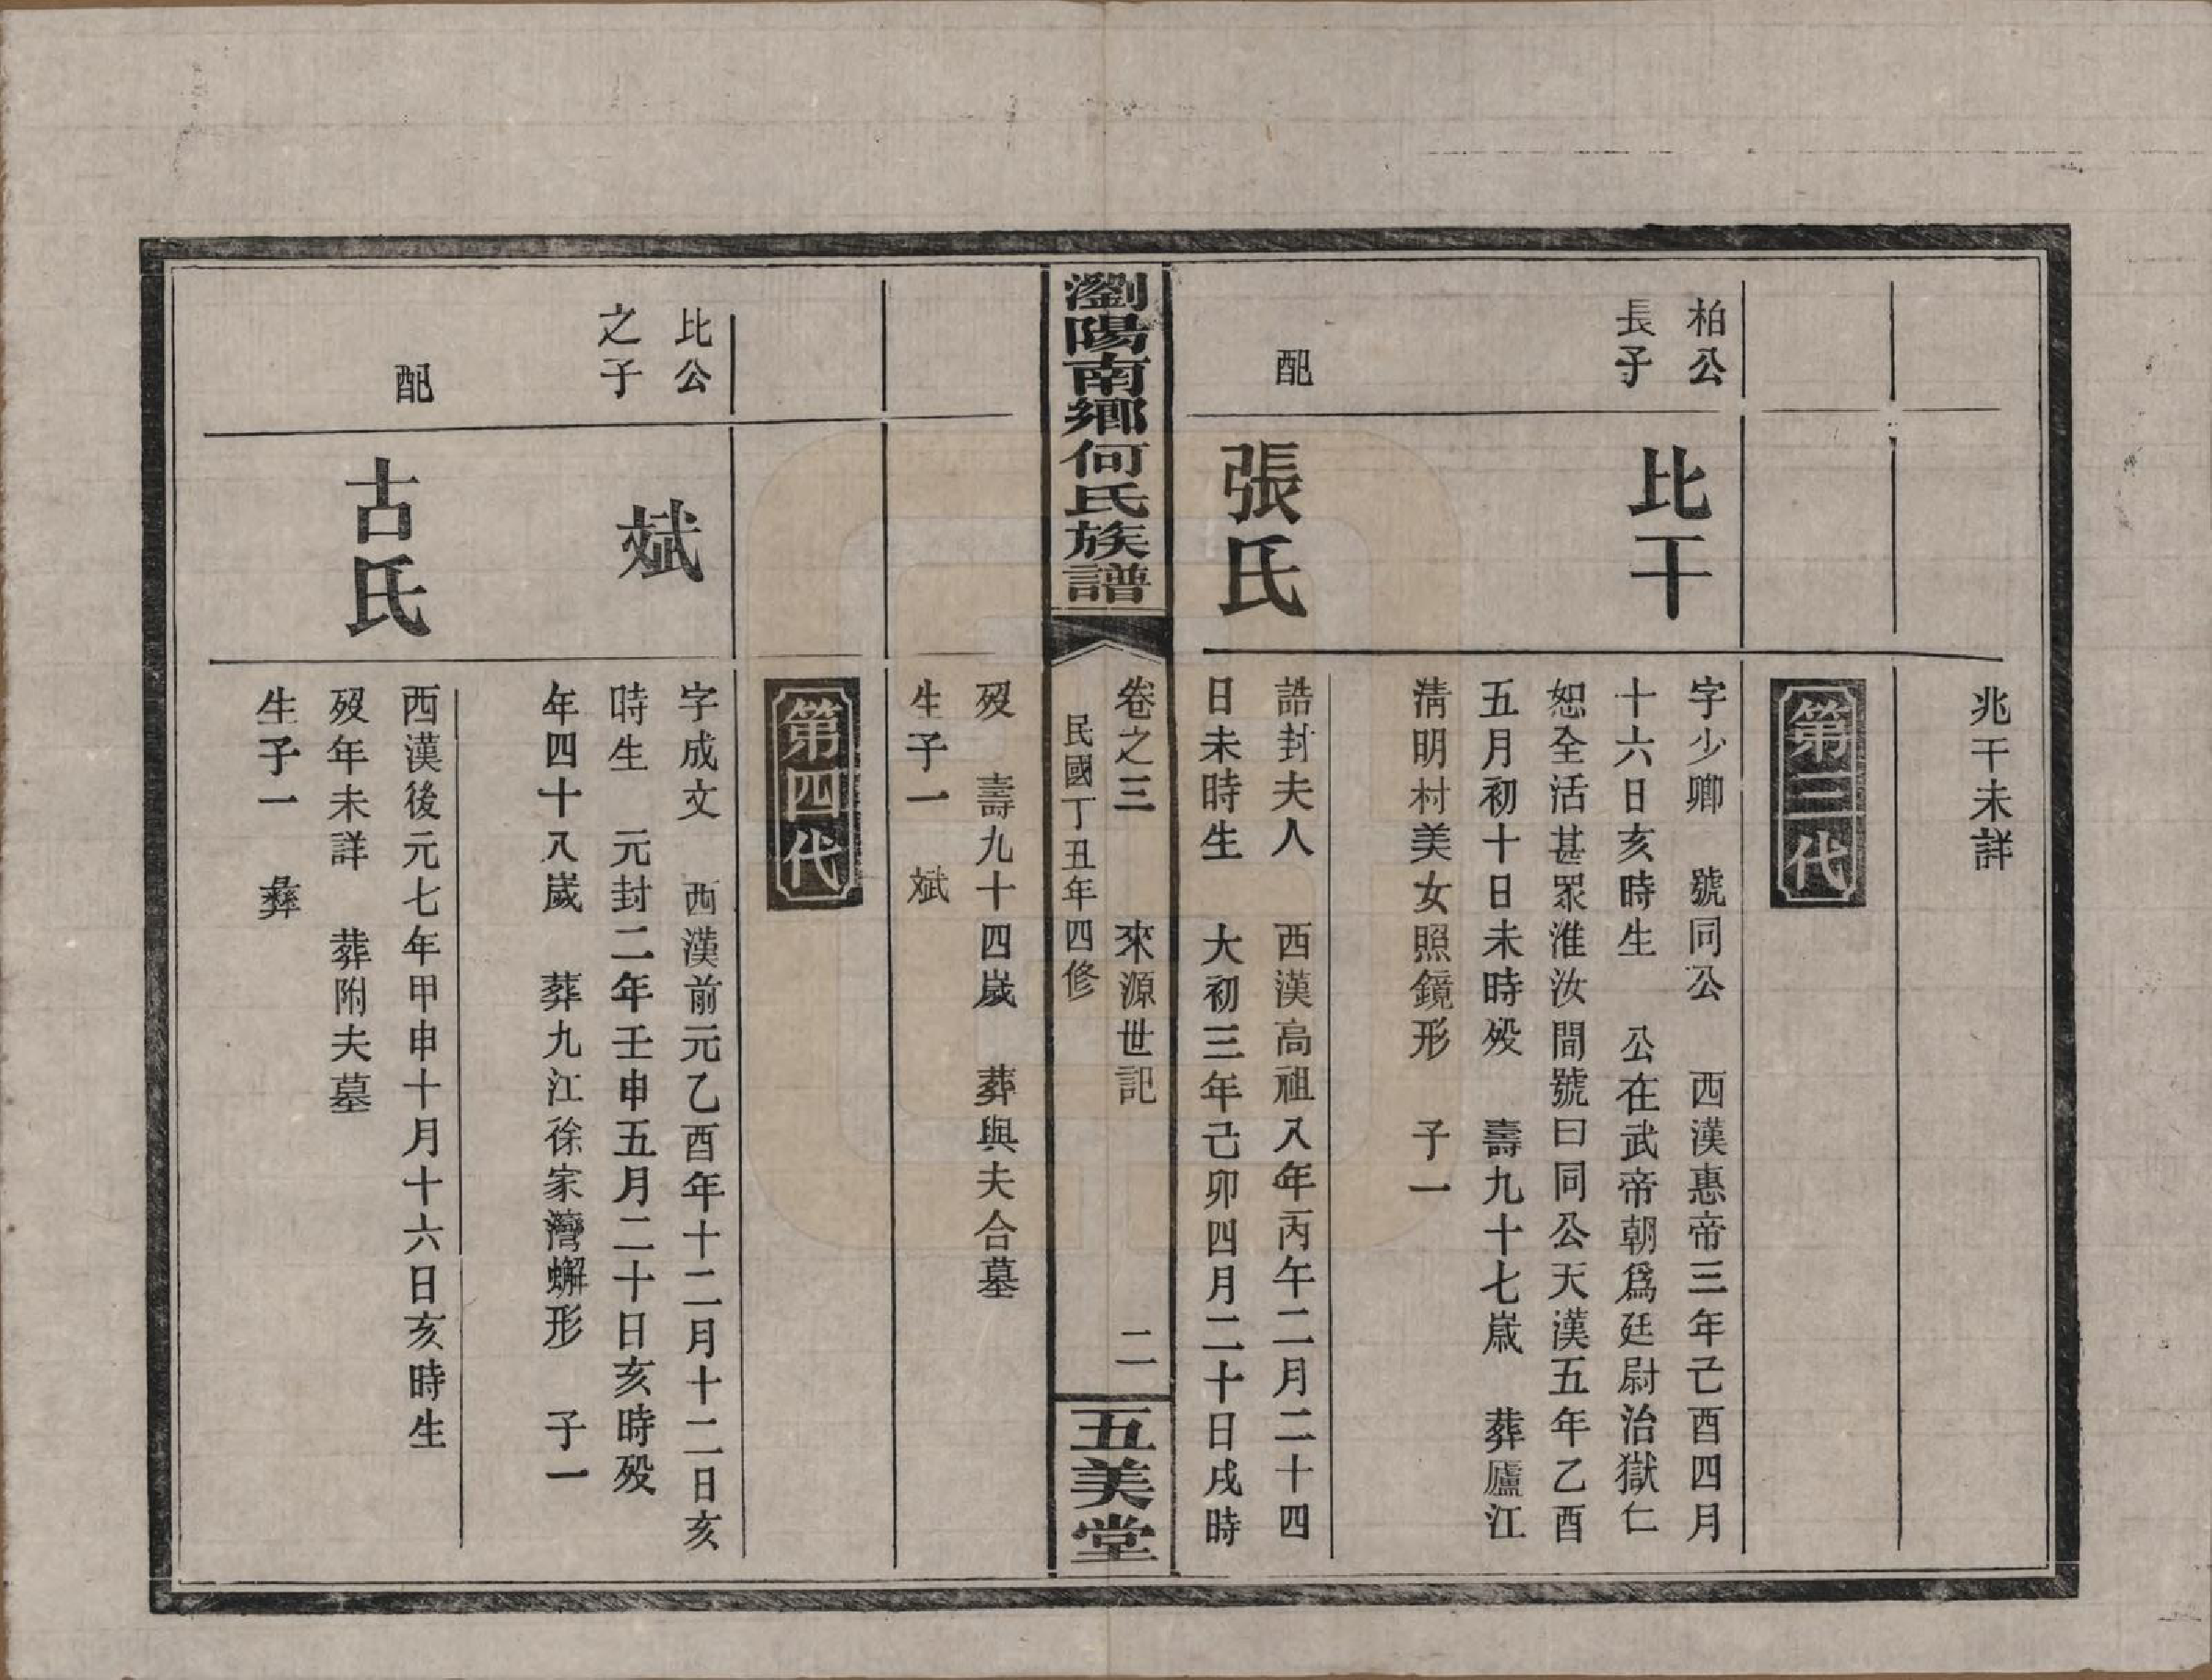 兆干未詳
第三代
柏公
長子
比干
字少卿　號同公　西漢惠帝三年己酉四月
十六日亥時生　公在武帝朝爲廷尉治獄仁
恕全活甚眾淮汝間號曰同公天漢五年乙酉
五月初十日未時殁　壽九十七歲　葬廬江
淸明村美女照鏡形　子一
配
張氏
誥封夫人　西漢高祖八年丙午二月二十四
日未時生　大初三年己卯四月二十日戌時
瀏陽南鄉何氏族譜
卷之三　來源世記　二
民國丁丑年四修
五美堂
殁　壽九十四歲　葬與夫合墓
生子一　斌
第四代
比公
之子
斌
字成文　西漢前元乙酉年十二月十二日亥
時生　元封二年壬申五月二十日亥時殁
年四十八歲　葬九江徐家灣蠏形　子一
配
古氏
西漢後元七年甲申十月十六日亥時生
殁年未詳　葬附夫墓
生子一　彝